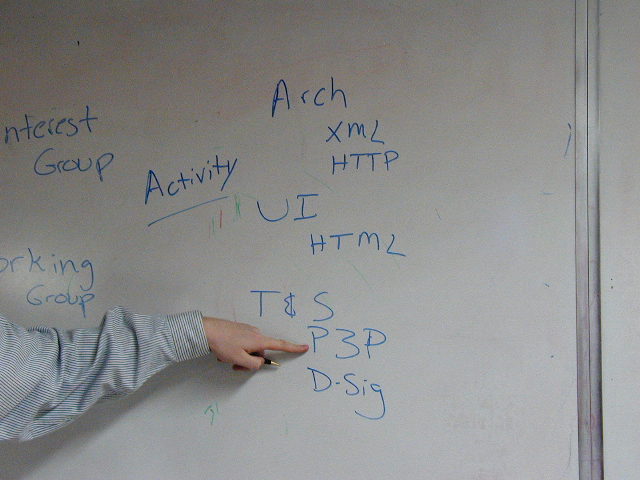 nterest
Group
orking
Group
Activity
Arch
XML
HTTP
UI
HTML
T & S
P3P
D-Sig